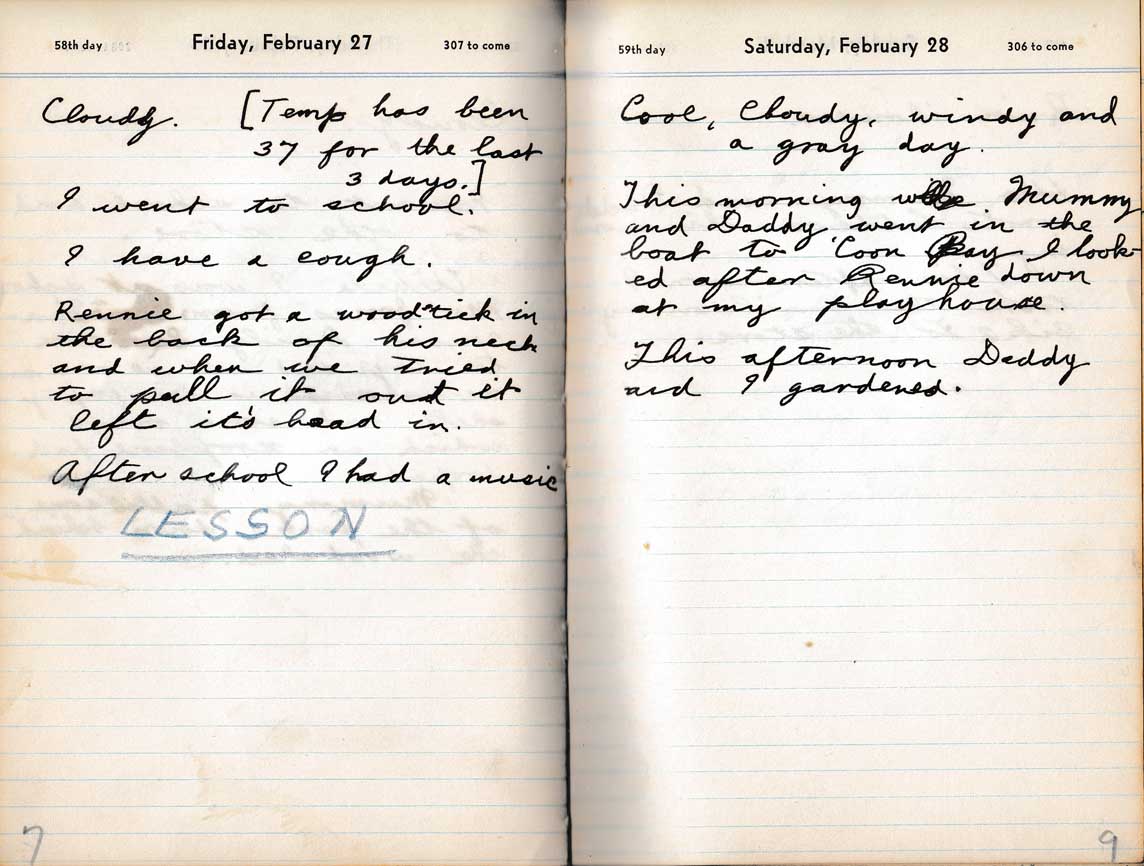 58th day Friday, February 27 307 to come
Cloudy. [Temp has been
37 for the last
3 days.]
I went to school.
I have a cough.
Rennie got a wood tick in
the back of his neck
and when we tried
to pull it out it
left it's head in.
After school I had a music
LESSON
7
59th day Saturday, February 28 306 to come
Cool, Cloudy, windy and
a gray day.
This morning Mummy
and Daddy went in the
boat to 'Coon Bay I look-
ed after Rennie down
at my playhouse.
This afternoon Daddy
and I gardened.
9